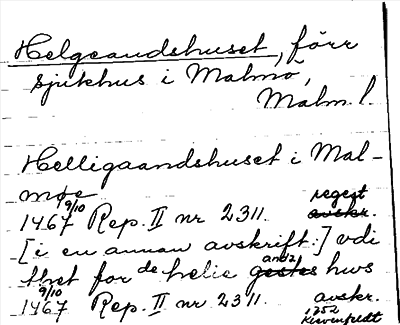 Helgeandshuset, förr
sjukhus i Malmö,
Malm. l.
Helligaandshuset i Mal-
møe
1467 9/10 Rep. II nr 2311. regest avskr.
[i en annan avskrift:] vdi
thet for de helie andz gestes hws
1467 9/10 Rep. II nr 2311. avskr.
1252